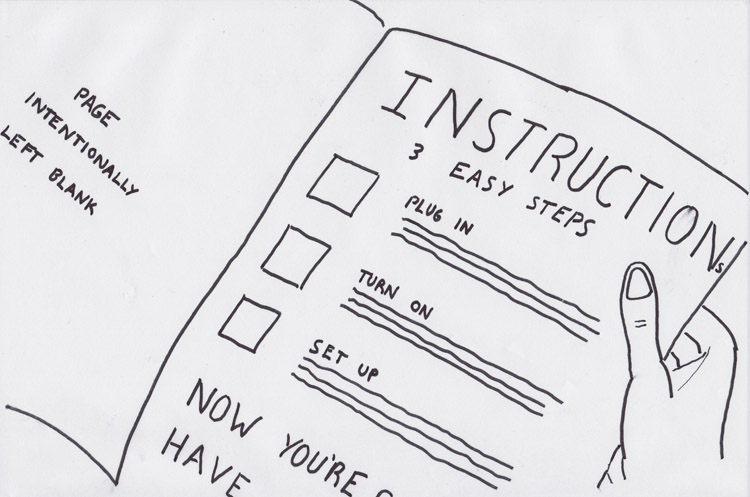 PAGE
INTENTIONALLY
LEFT BLANK
INSTRUCTIONS
3 EASY STEPS
PLUG IN
TURN ON
SET UP
NOW YOU'RE
HAVE